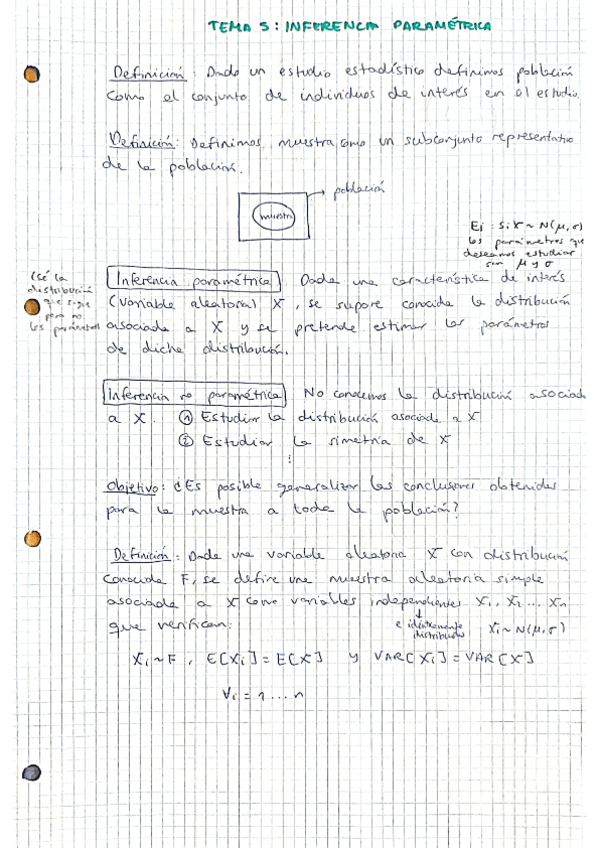 TEMA 5: INFERENCIA PARAMÉTRICA
Definición: Dado un estudio estadístico definimos población
como el conjunto de individuos de interés en el estudio.
Definición: Definimos muestra como un subconjunto representativo
de la población.
población
muestra
Ej: Si X ~ N(μ,σ)
los parámetros que
deseamos estudiar
son μ y σ
(sé la
distribución
que sigue
pero no
los parámetros)
Inferencia paramétrica Dada una característica de interés
(variable aleatoria) X, se supone conocida la distribución
asociada a X y se pretende estimar los parámetros
de dicha distribución.
Inferencia no paramétrica No conocemos la distribución asociada
a X. ① Estudiar la distribución asociada a X
② Estudiar la simetría de X
⋮
Objetivo: ¿Es posible generalizar las conclusiones obtenidas
para la muestra a toda la población?
Definición: Dada una variable aleatoria X con distribución
conocida F, se define una muestra aleatoria simple
asociada a X como variables independientes X₁, X₂ ... Xn
que verifican:
e idénticamente
distribuidas
Xi ~ N(μ,σ)
Xi ~ F, E[Xi] = E[X] y VAR[Xi] = VAR[X]
∀i = 1 ... n